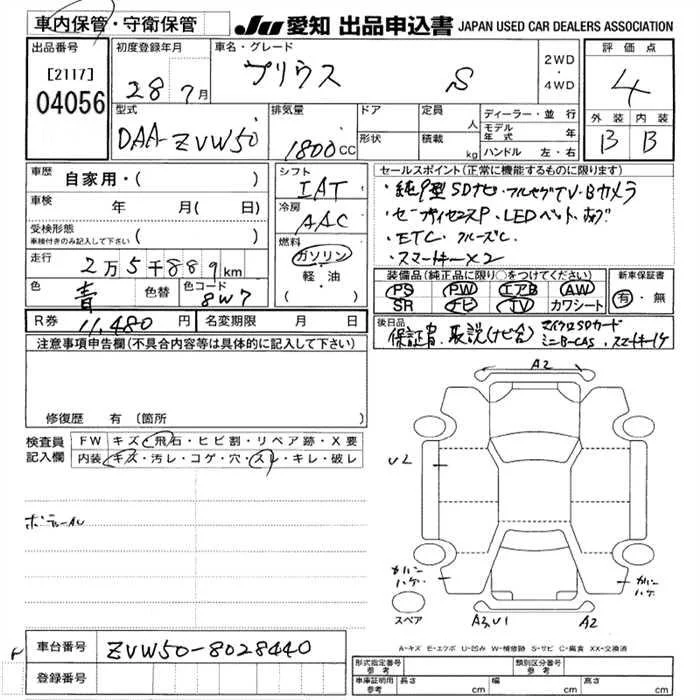 車内保管・守衛保管
JU 愛知 出品申込書 JAPAN USED CAR DEALERS ASSOCIATION
出品番号
[2117]
04056
初度登録年月
28 7月
車名・グレード
プリウス S
2WD
・
4WD
評価点
4
外装 内装
B B
型式
DAA-ZVW50
排気量
1800cc
ドア
形状
定員 人
積載 kg
ディーラー・並行
モデル年式 年
ハンドル 左・右
車歴 自家用・( )
車検 年 月( 日)
受検形態
車検付きのみ記入して下さい ( )
走行 2万5千889km
色 青 色替 色コード 8W7
R券 11,480円 名変期限 月 日
シフト
IAT
冷房
AAC
燃料
ガソリン
・
軽・油
( )
セールスポイント(正常に機能するものに限ります)
・純9型SDナビ・フルセグTV・Bカメラ
・セーフティセンスP・LEDヘッド、
・ETC・クルーズC・
・スマートキー×2
装備品(純正品に限り○をつけてください)
PS PW エアB AW
SR ナビ TV カワシート
新車保証書
有・無
後日品
保証書、取説(ナビ含) マイクロSDカード
ミニB-CAS、スマートキー1ケ
注意事項申告欄(不具合内容等は具体的に記入して下さい)
修復歴 有 〔箇所 〕
検査員
記入欄
FW キズ・飛石・ヒビ割・リペア跡・X要
内装 キズ・汚レ・コゲ・穴・スレ・キレ・破レ
A2
U2
カバー
ハゲ
カバー
ハゲ
スペア
A3,U1 A2
A-キズ E-エクボ U-凹み W-補修跡 S-サビ C-腐食 XX-交換済
車台番号 ZVW50-8028440
登録番号
形式指定番号
参考
類別区分番号
参考
車庫証明用
参考
長さ cm 幅 cm 高さ cm